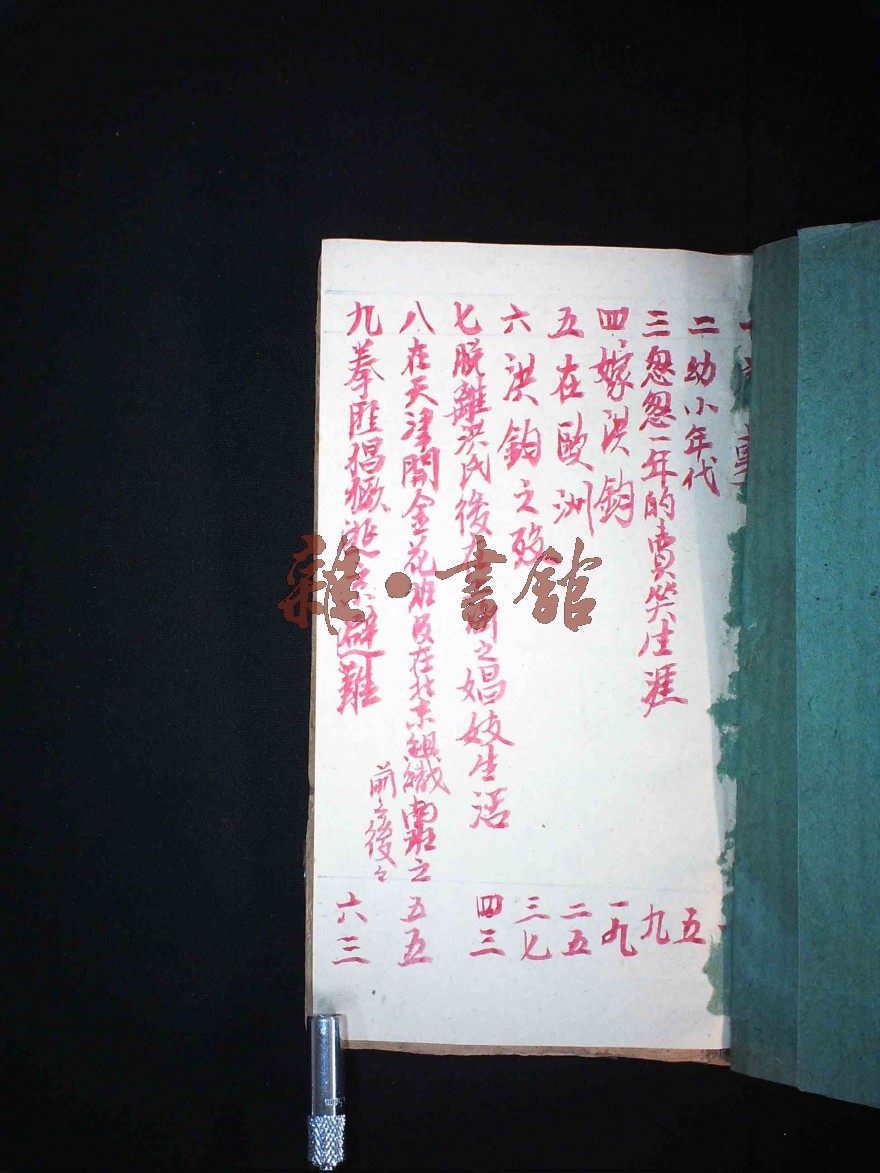 一
二 幼小年代 五
三 忽忽一年的賣笑生涯 九
四 嫁洪鈞 一九
五 在歐洲 二五
六 洪鈞之歿 三七
七 脫離洪氏後在 之娼妓生活 四三
八 在天津開金花班及在北京組織南班之前前後後 五五
九 拳匪猖獗逃 避難 六三
雜·書館